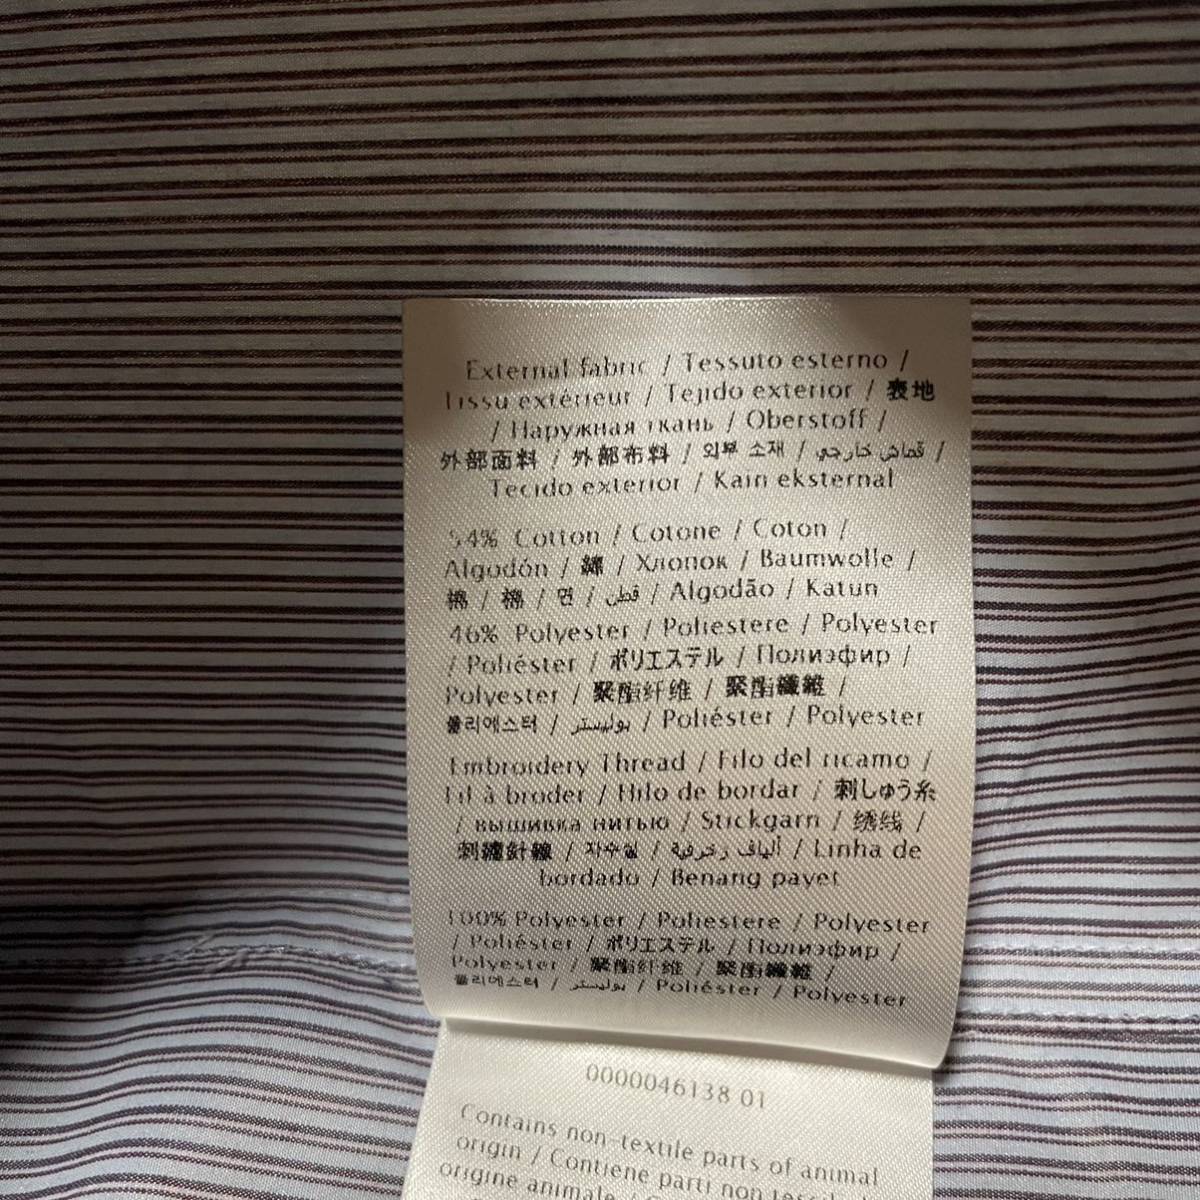 External fabric / Tessuto esterno /
Tissu extérieur / Tejido exterior / 表地
/ Наружная ткань / Oberstoff /
外部面料 / 外部布料 / 외부 소재 / قماش خارجي /
Tecido exterior / Kain eksternal
54% Cotton / Cotone / Coton /
Algodón / 綿 / Хлопок / Baumwolle /
棉 / 棉 / 면 / قطن / Algodão / Katun
46% Polyester / Poliestere / Polyester
/ Poliéster / ポリエステル / Полиэфир /
Polyester / 聚酯纤维 / 聚酯纖維 /
폴리에스터 / بوليستر / Poliéster / Polyester
Embroidery Thread / Filo del ricamo /
Fil à broder / Hilo de bordar / 刺しゅう糸
/ вышивка нитью / Stickgarn / 绣线 /
刺繡針線 / 자수실 / ألياف زخرفية / Linha de
bordado / Benang payet
100% Polyester / Poliestere / Polyester
/ Poliéster / ポリエステル / Полиэфир /
Polyester / 聚酯纤维 / 聚酯纖維 /
폴리에스터 / بوليستر / Poliéster / Polyester
0000046138 01
Contains non-textile parts of animal
origin / Contiene parti non
origine animale /